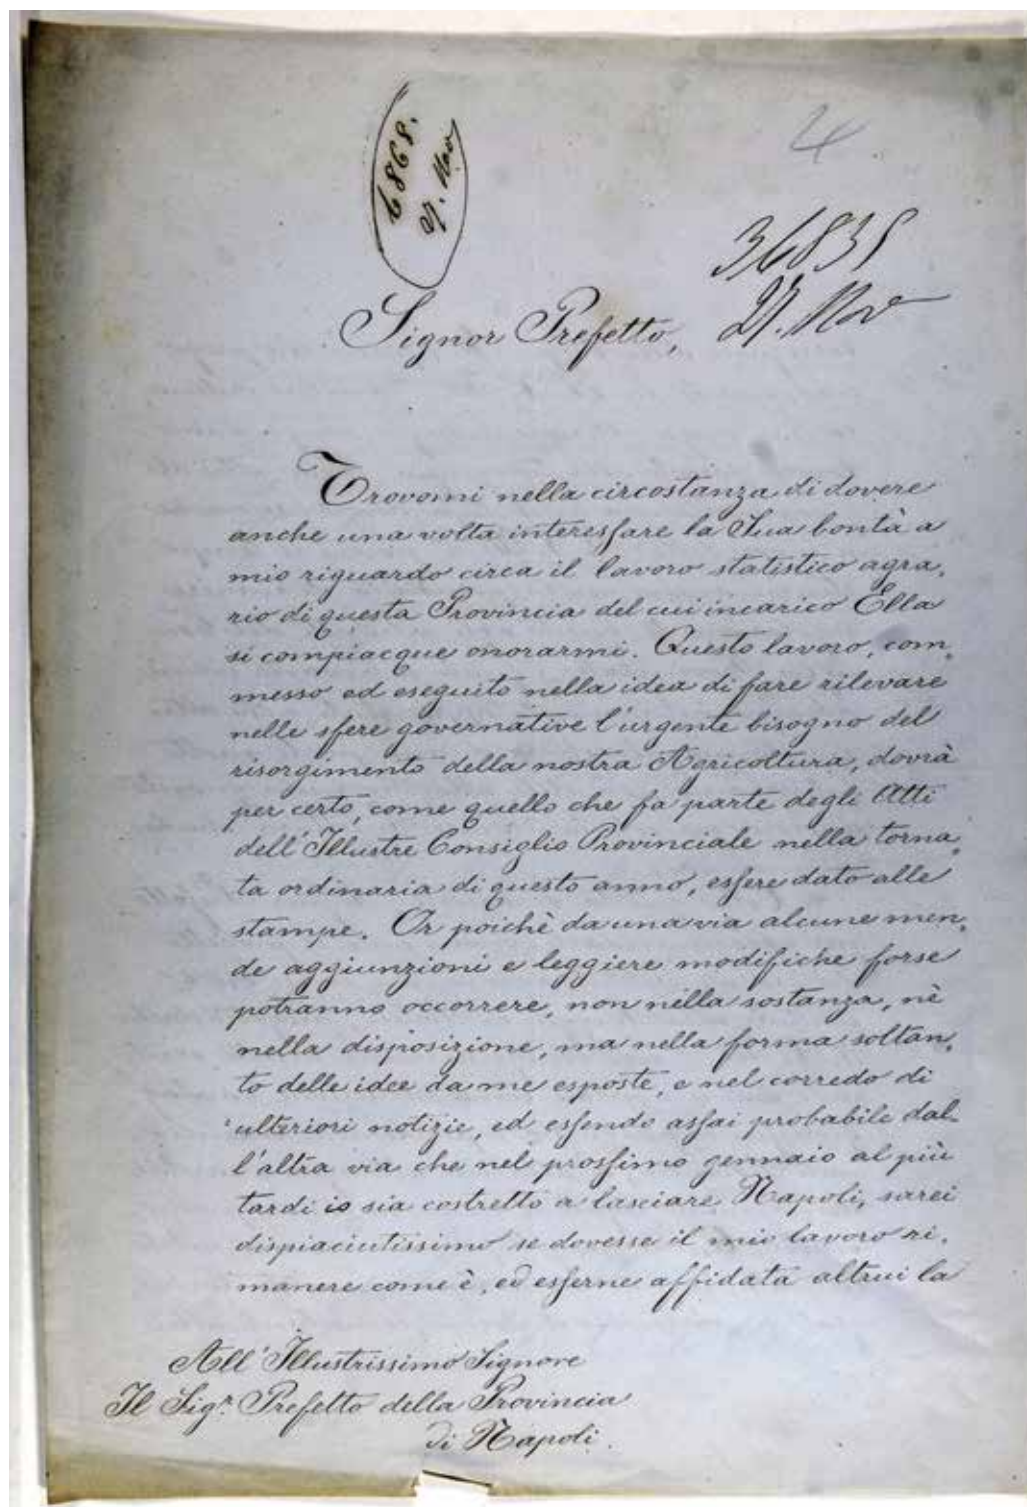 6868.
27. Nov
4
36835
27. Nov
Signor Prefetto,
Trovomi nella circostanza di dovere
anche una volta interessare la Sua bontà a
mio riguardo circa il lavoro statistico agra,
rio di questa Provincia del cui incarico Ella
si compiacque onorarmi. Questo lavoro, com,
messo ed eseguito nella idea di fare rilevare
nelle sfere governative l'urgente bisogno del
risorgimento della nostra Agricoltura, dovrà
per certo, come quello che fa parte degli Atti
dell'Illustre Consiglio Provinciale nella torna,
ta ordinaria di questo anno, essere dato alle
stampe. Or poichè da una via alcune men,
de aggiunzioni e leggiere modifiche forse
potranno occorrere, non nella sostanza, nè
nella disposizione, ma nella forma soltan,
to delle idee da me esposte, e nel corredo di
ulteriori notizie, ed essendo assai probabile dal-
l'altra via che nel prossimo gennaio al più
tardi io sia costretto a lasciare Napoli, sarei
dispiaciutissimo se dovesse il mio lavoro ri,
manere come è, ed esserne affidata altrui la
All'Illustrissimo Signore
Il Sigr. Prefetto della Provincia
di Napoli.